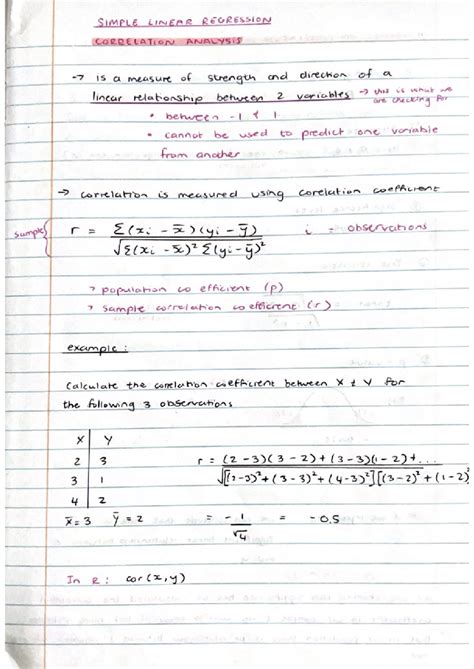 SIMPLE LINEAR REGRESSION
CORRELATION ANALYSIS
→ is a measure of strength and direction of a
linear relationship between 2 variables → this is what we
are checking for
• between -1 & 1
• cannot be used to predict one variable
from another
→ correlation is measured using corelation coefficient
sample { r = Σ(xi - x̄)(yi - ȳ) i - observations
√Σ(xi - x̄)² Σ(yi - ȳ)²
> population co efficient (p)
> sample correlation coefficient (r)
example:
Calculate the correlation coefficient between X & Y for
the following 3 observations
X Y
2 3 r = (2-3)(3-2)+(3-3)(1-2)+...
3 1 √[(2-3)²+(3-3)²+(4-3)²][(3-2)²+(1-2)²
4 2
x̄=3 ȳ=2 = -1/√4 = -0.5
In R: cor(x,y)